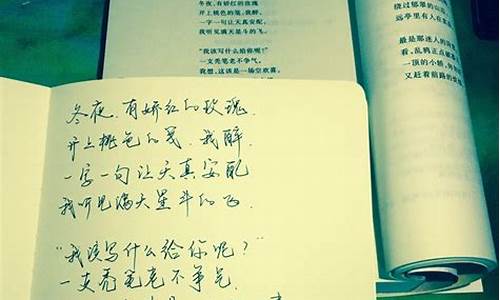 冬夜，有娇红的玫瑰
开上桃色的笺，我醉，
一字一句让天真安配，
我听见满天星斗的飞。
“我该写什么给你呢？”
一支秃笔老不争气。
我想，这该是一场空欢喜，
绕过郁翠的山
远亭里有人在
最是那迷人的
看，乱鸦正点破
一顶的小轿，
又赶着前路的
冬夜，有娇红的玫瑰，
开上桃色的笺，我醉，
一字一句让天真安配
我听见满天星斗的飞。
“我该写什么给你呢？”
一支秃笔老不争气，